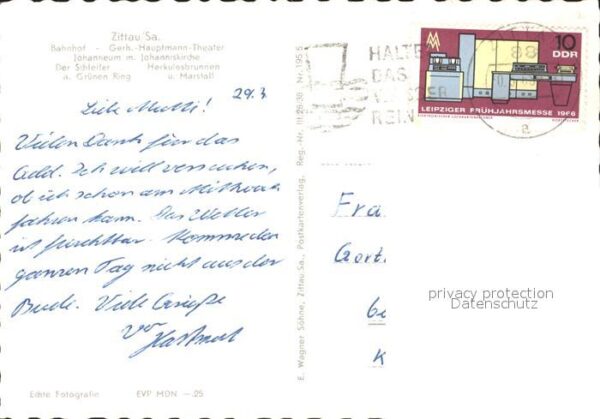 Zittau Sa.
Bahnhof - Gerh.-Hauptmann-Theater
Johanneum m. Johanniskirche
Der Schleifer Herkulesbrunnen
a. Grünen Ring u. Marstall
29.3
Liebe Mutti!
Vielen Dank für das
Geld. Ich will versuchen,
ob ich schon am Mittwoch
fahren kann. Das Wetter
ist furchtbar. Komme den
ganzen Tag nicht aus der
Bude. Viele Grüße
von
Hartmut
Echte Fotografie EVP MDN —.25
E. Wagner Söhne, Zittau Sa., Postkartenverlag,
HALTE
DAS
REIN
10
DDR
LEIPZIGER FRÜHJAHRSMESSE 1966
a
Fra
Gert.
K
privacy protection
Datenschutz